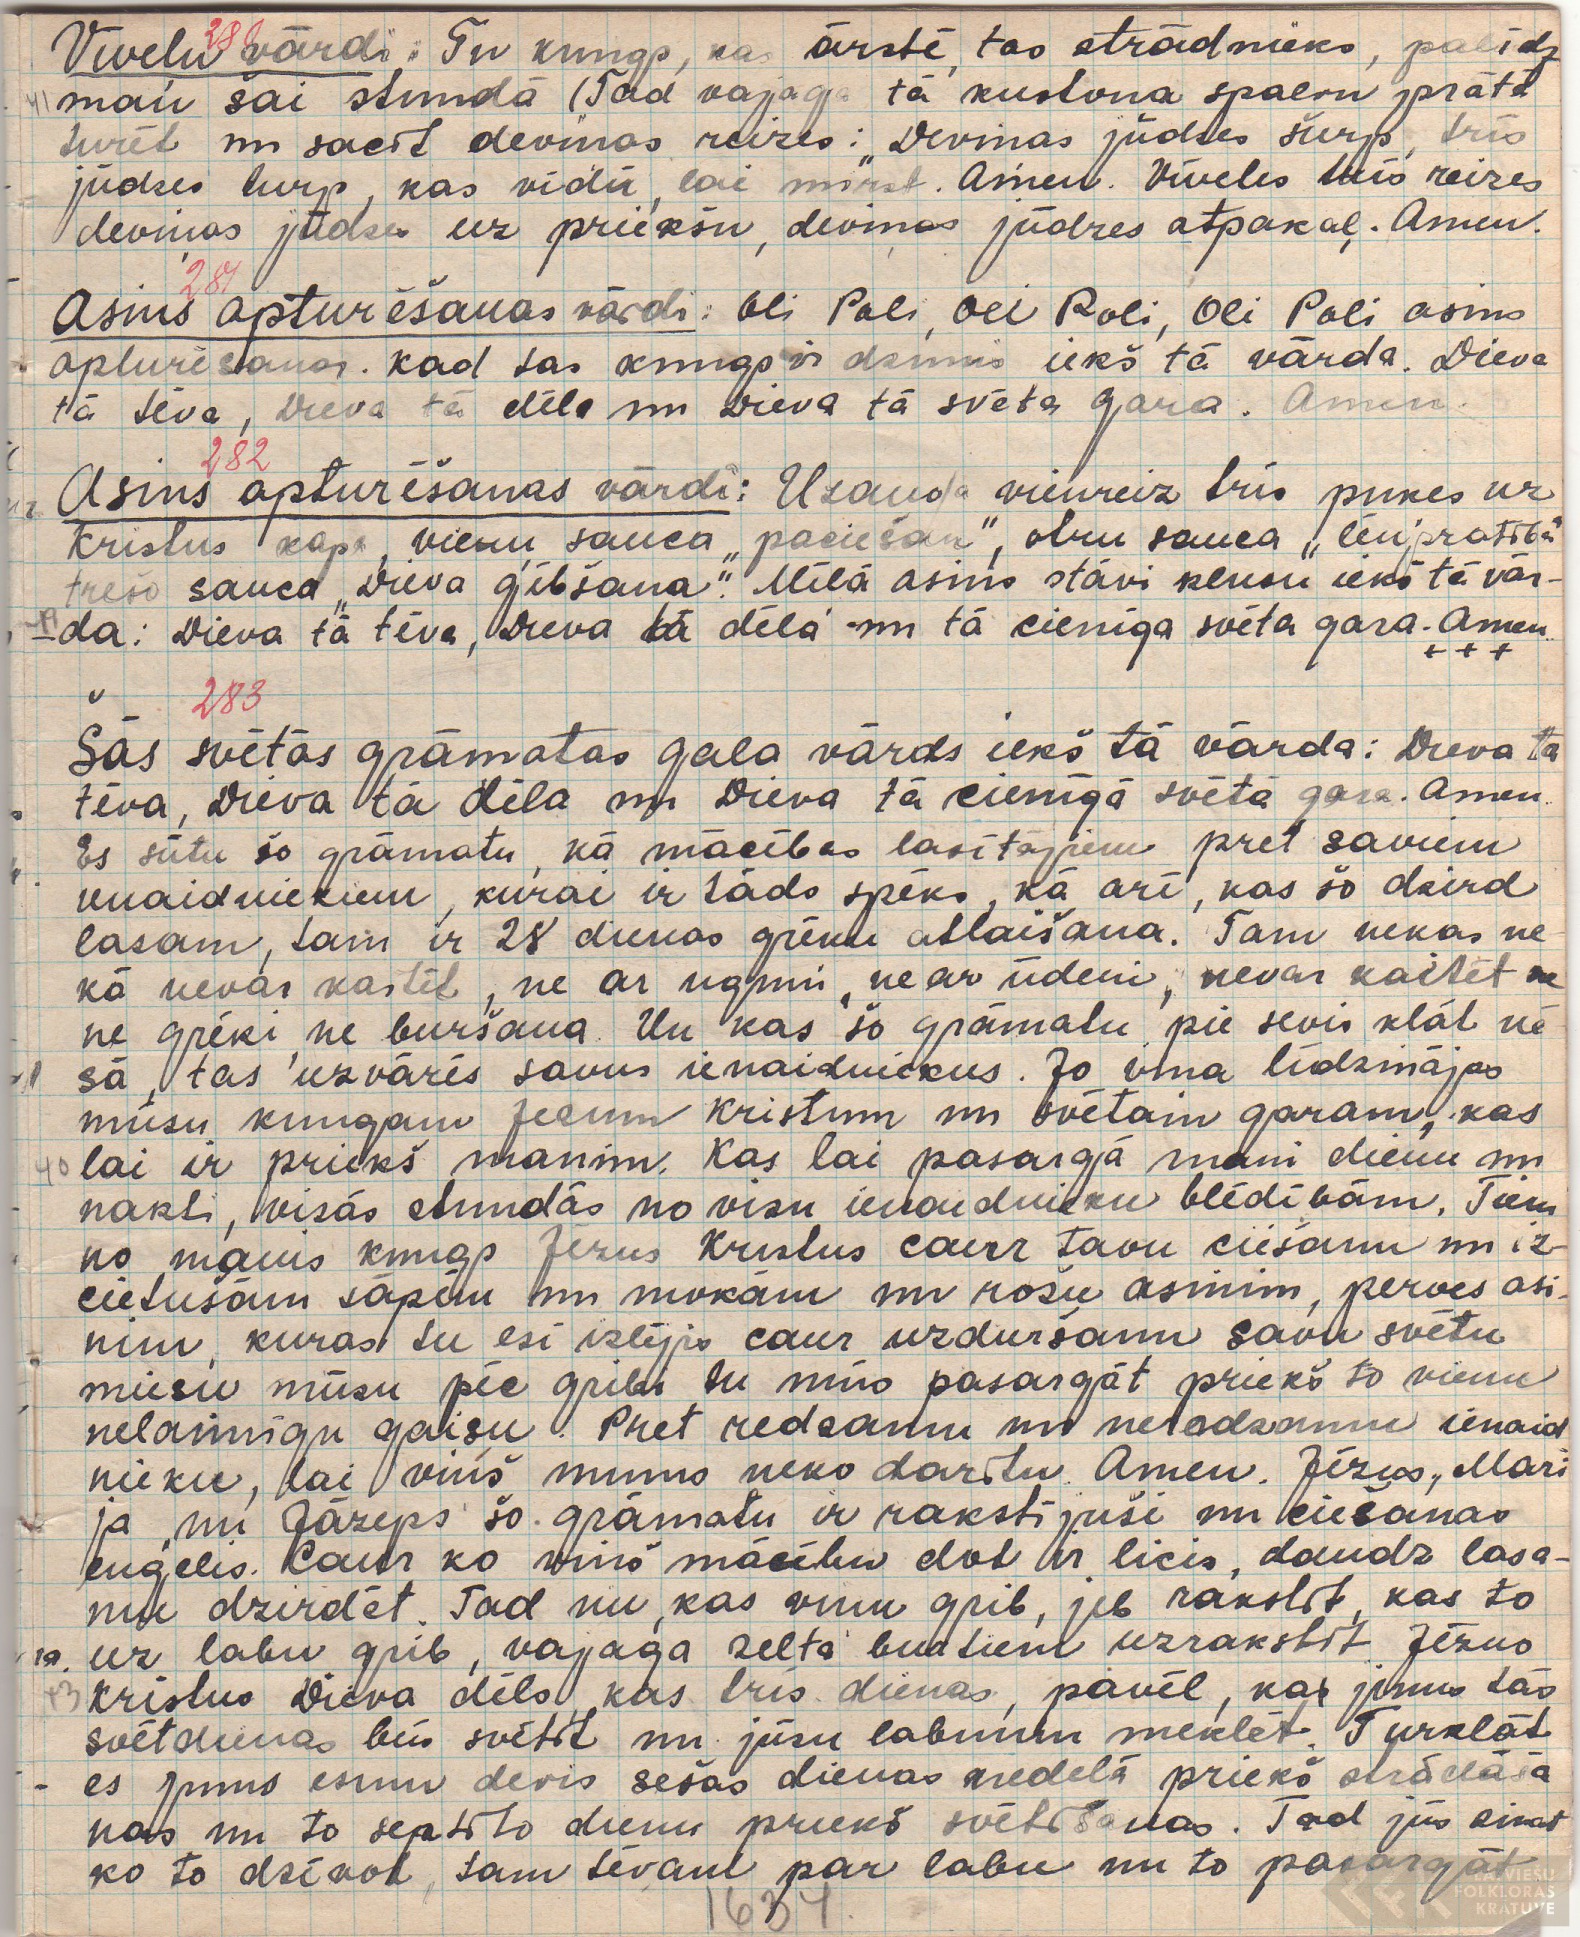 280
Vīveļu vārdi: Tu kungs, kas ārstē, tas strādnieks, palīdz
man šai stundā (Tad vajaga tā kustoņa spalvu prātā
turēt un sacīt deviņas reizes: „Deviņas jūdzes šurp, trīs
jūdzes turp, kas vidū, lai mirst. Amen. Vīveles trīs reizes
deviņas jūdzes uz priekšu, deviņas jūdzes atpakaļ. Amen.
281
Asins apturēšanas vārdi: Oli Poli, Oli Roli, Oli Poli asins
apturēšanas. Kad tas kungs ir dzimis iekš tā vārda. Dieva
tā tēva, Dieva tā dēla un Dieva tā svēta gara. Amen.
282
Asins apturēšanas vārdi: Uzauga vienreiz trīs pukes uz
Kristus kapa, vienu sauca „paciešan", otru sauca „lēnprātība"
trešo sauca „Dieva ģībšana". Mīlā asins stāvi klusu iekš tā vār-
da: Dieva tā tēva, Dieva tā dēla un tā cienīga svēta gara. Amen.
+ + +
283
Šās svētās grāmatas gala vārds iekš tā vārda: Dieva tā
tēva, Dieva tā dēla un Dieva tā cienīgā svētā gara. Amen.
Es sūtu šo grāmatu, kā mācības lasītājiem pret saviem
ienaidniekiem, kurai ir tāds spēks, kā arī, kas šo dzird
lasam, tam ir 28 dienas grēku atlaišana. Tam nekas ne-
kā nevar kaitēt, ne ar uguni, ne ar ūdeni, nevar kaitēt ne
ne grēki, ne buršana. Un kas šo grāmatu pie sevis klāt nē-
sā, tas uzvārēs savus ienaidniekus. Jo viņa līdzinājas
mūsu kungam Jezum Kristum un svētam garam, kas
lai ir priekš manim. Kas lai pasargā mani dienu un
nakti, visās stundās no visu ienaidnieku blēdībām. Tiem
no manis kungs Jēzus Kristus caur tavu ciešanu un iz-
cietušām sāpēm un mokām un rožu asinim, perves asi-
nim, kuras tu esi izlējis caur uzduršanu savu svētu
miesu mūsu pēc gribi tu mūs pasargāt priekš to vienu
nelaimīgu gaisu. Pret redzamu un neredzamu ienaid
nieku, lai viņš mums neko darītu. Amen. Jēzus, Mari
ja un Jāzeps šo grāmatu ir rakstijuši un ciešanas
eņģelis. Caur ko viņš mācību dot ir licis, daudz lasa-
mu dzirdēt. Tad nu, kas viņu grib, jeb rakstīt, kas to
uz labu grib, vajaga zelta burtiem uzrakstīt Jēzus
Kristus Dieva dēls, kas trīs dienas, pavēl, kas jums tās
svētdienas būs svētīt un jūsu labumu meklēt. Turklāt
es jums esmu devis sešas dienas nedēlā priekš strādāša
nas un to septīto dienu priekš svētīšanas. Tad jūs einat
ko to dzīvot, tam tēvam par labu un to pasargāt
1634.
LATVIEŠU
FOLKLORAS
KRĀTUVE